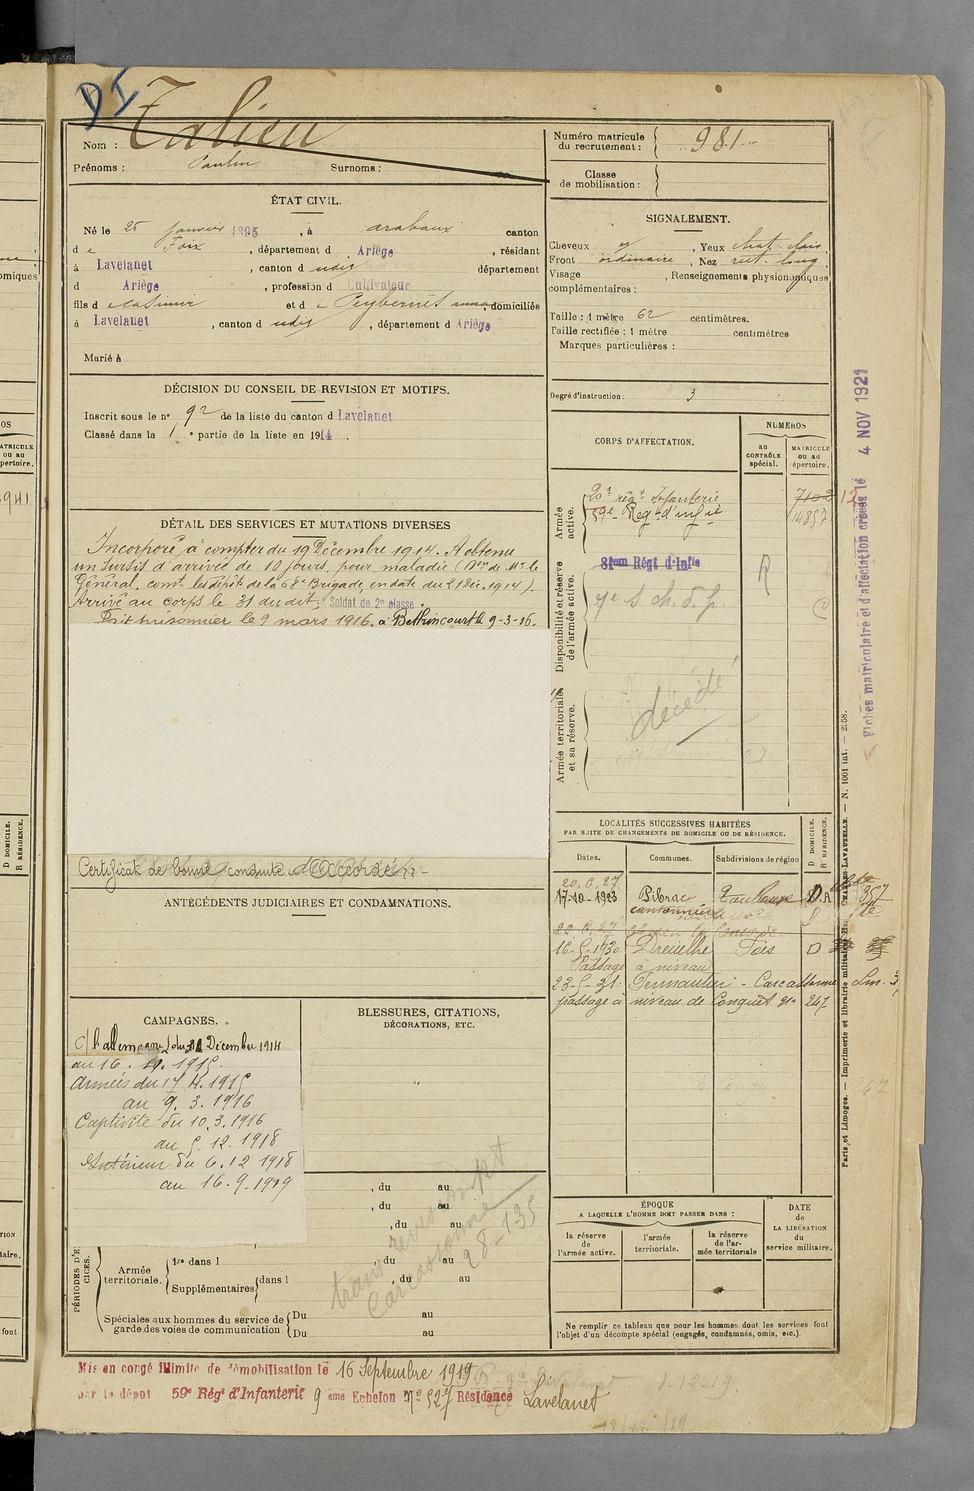 DI
Nom : Talieu
Prénoms : Paulin Surnoms :
Numéro matricule du recrutement : 981
Classe de mobilisation :
ÉTAT CIVIL.
Né le 25 janvier 1895, à arabaux canton
d e Foix, département d Ariège, résidant
à Lavelanet, canton d udit département
d Ariège, profession d Cultivateur
fils d e Casimir et d e Peybernès anna, domiciliés
à Lavelanet, canton d udit, département d Ariège
Marié à
SIGNALEMENT.
Cheveux Yeux chat. clair
Front ordinaire, Nez rect. long
Visage , Renseignements physionomiques
complémentaires :
Taille : 1 mètre 62 centimètres.
Taille rectifiée : 1 mètre centimètres
Marques particulières :
Degré d'instruction : 3
DÉCISION DU CONSEIL DE REVISION ET MOTIFS.
Inscrit sous le n° 92 de la liste du canton d Lavelanet
Classé dans la 1 e partie de la liste en 1914.
DÉTAIL DES SERVICES ET MUTATIONS DIVERSES
Incorporé à compter du 19 Décembre 1914. A obtenu
un sursis d'arrivée de 10 jours, pour maladie (Don de Mr le
Général, comt les dépôts de la 68e Brigade, en date du 21 Déc. 1914).
Arrivé au corps le 31 dudit. Soldat de 2e classe.
Fait prisonnier le 9 mars 1916. à Bethincourt le 9-3-16.
Certificat de bonne conduite "Accordé"
ANTÉCÉDENTS JUDICIAIRES ET CONDAMNATIONS.
CORPS D'AFFECTATION.
NUMÉROS
AU CONTRÔLE spécial.
MATRICULE OU AU répertoire.
Armée active.
20e régt Infanterie
59e Régt d'infie
14857
Disponibilité et réserve de l'armée active.
81eme Régt d'Infie
R
Armée territoriale et sa réserve.
décédé
Fiches matriculaire et d'affectation créées le 4 NOV 1921
LOCALITÉS SUCCESSIVES HABITÉES
PAR SUITE DE CHANGEMENTS DE DOMICILE OU DE RÉSIDENCE.
Dates. Communes. Subdivisions de région D DOMICILE. R RÉSIDENCE.
20.6.27
17-10-1923 Pibrac Toulouse D.R 357
cantonnier
16-5-1930 Dreuilhe Foix D
Passage à niveau
23-5-31. Pennautier - Carcassonne
passage à niveau de Conques N° 247
CAMPAGNES.
C/ l'allemagne du 31 Décembre 1914
au 16. 4. 1915.
Armées du 17.4.1915
au 9.3.1916
Captivité du 10.3.1916
au 5.12.1918
Intérieur du 6.12 1918
au 16.9.1919
BLESSURES, CITATIONS,
DÉCORATIONS, ETC.
"
, du au
, du au
, du au
PÉRIODES D'EXERCICES.
Armée territoriale. 1re dans l , du au
Supplémentaires dans l , du au
Spéciales aux hommes du service de garde des voies de communication Du au
Du au
Carcassonne
28-135
ÉPOQUE
A LAQUELLE L'HOMME DOIT PASSER DANS :
la réserve de l'armée active.
l'armée territoriale.
la réserve de l'armée territoriale
DATE de LA LIBÉRATION du service militaire.
Ne remplir ce tableau que pour les hommes dont les services font
l'objet d'un décompte spécial (engagés, condamnés, omis, etc.).
Mis en congé illimité de démobilisation le 16 Septembre 1919
par le dépôt 59e Régt d'Infanterie 9 eme Echelon N° 527 Résidence Lavelanet
Paris et Limoges. — Imprimerie et librairie militaires Henri CHARLES-LAVAUZELLE. — N. 1001 int. — 258.